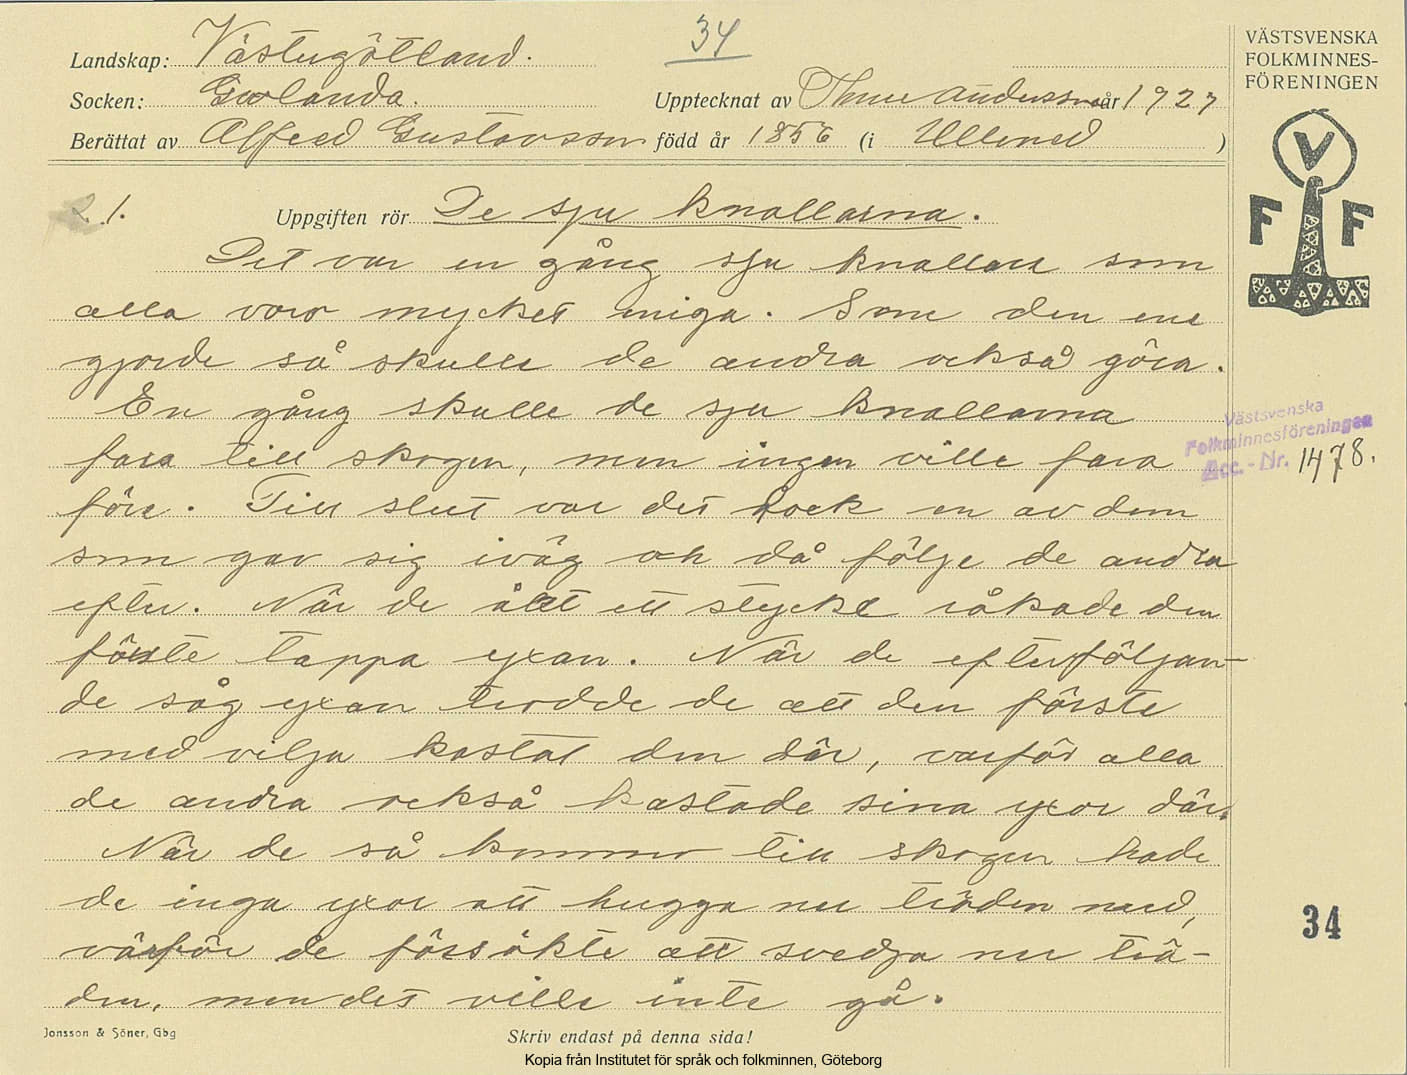 34
Landskap: Västergötland.
Socken: Grolanda.
Upptecknat av Thure Andersson år 1927
Berättat av Alfred Gustavsson född år 1856 (i Ullened )
VÄSTSVENSKA
FOLKMINNES-
FÖRENINGEN
V
F F
21.
Uppgiften rör De sju knallarna.
Det var en gång sju knallare som
alla voro mycket eniga. Som den ene
gjorde så skulle de andra också göra.
En gång skulle de sju knallarna
fara till skogen, men ingen ville fara
före. Till slut var det dock en av dem
som gav sig iväg och då följe de andra
efter. När de åkt ett stycke råkade den
förste tappa yxan. När de efterföljan-
de såg yxan trodde de att den förste
med vilja kastat den där, varför alla
de andra också kastade sina yxor där.
När de så kommo till skogen hade
de inga yxor att hugga ner träden med,
varför de försökte att svedja ner trä-
den, men det ville inte gå.
Västsvenska
Folkminnesföreningen
Acc.-Nr. 1478.
34
Jonsson & Söner, Gbg
Skriv endast på denna sida!
Kopia från Institutet för språk och folkminnen, Göteborg